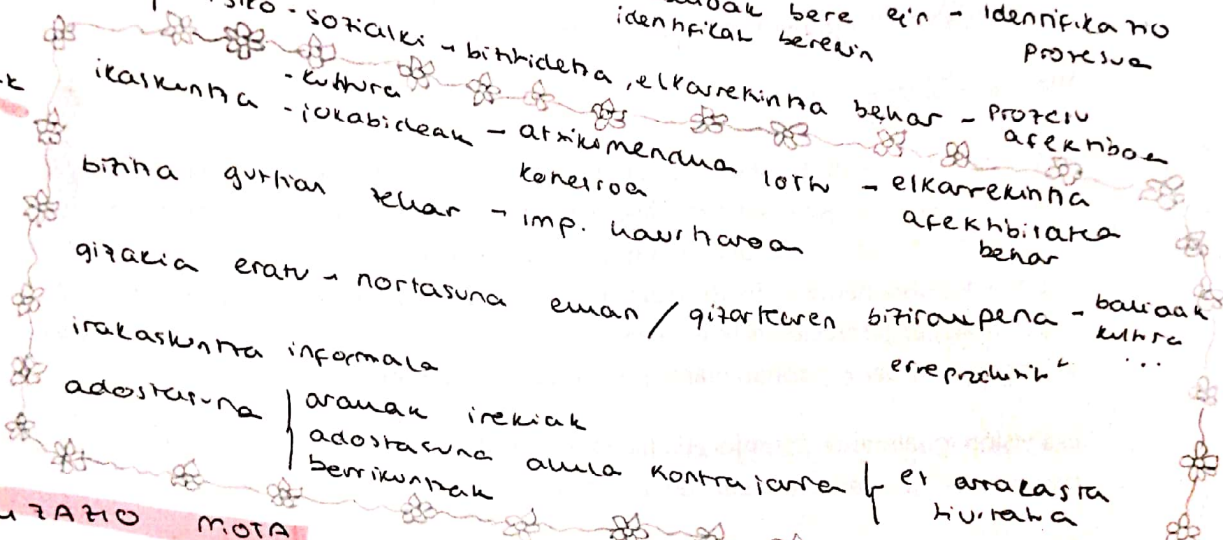 bere egin - identifikazio
identifikatu berekin prozesua
- sozialki - bizikidetza, elkarrekintza behar - prozesu
- kultura afektiboa
ikaskuntza - jokabideak - atxikimendua lotu - elkarrekintza
afektibitatea
behar
bizitza guztian zehar - imp. haurtzaroa
gizakia eratu - nortasuna eman / gizartearen biziraupena - balioak
kultura
erreproduzitu ...
irakaskuntza informala
adostasuna arauak irekiak
adostasuna aula kontrajarria ez arrakasta
berrikuntzak
ZAZIO MOTA